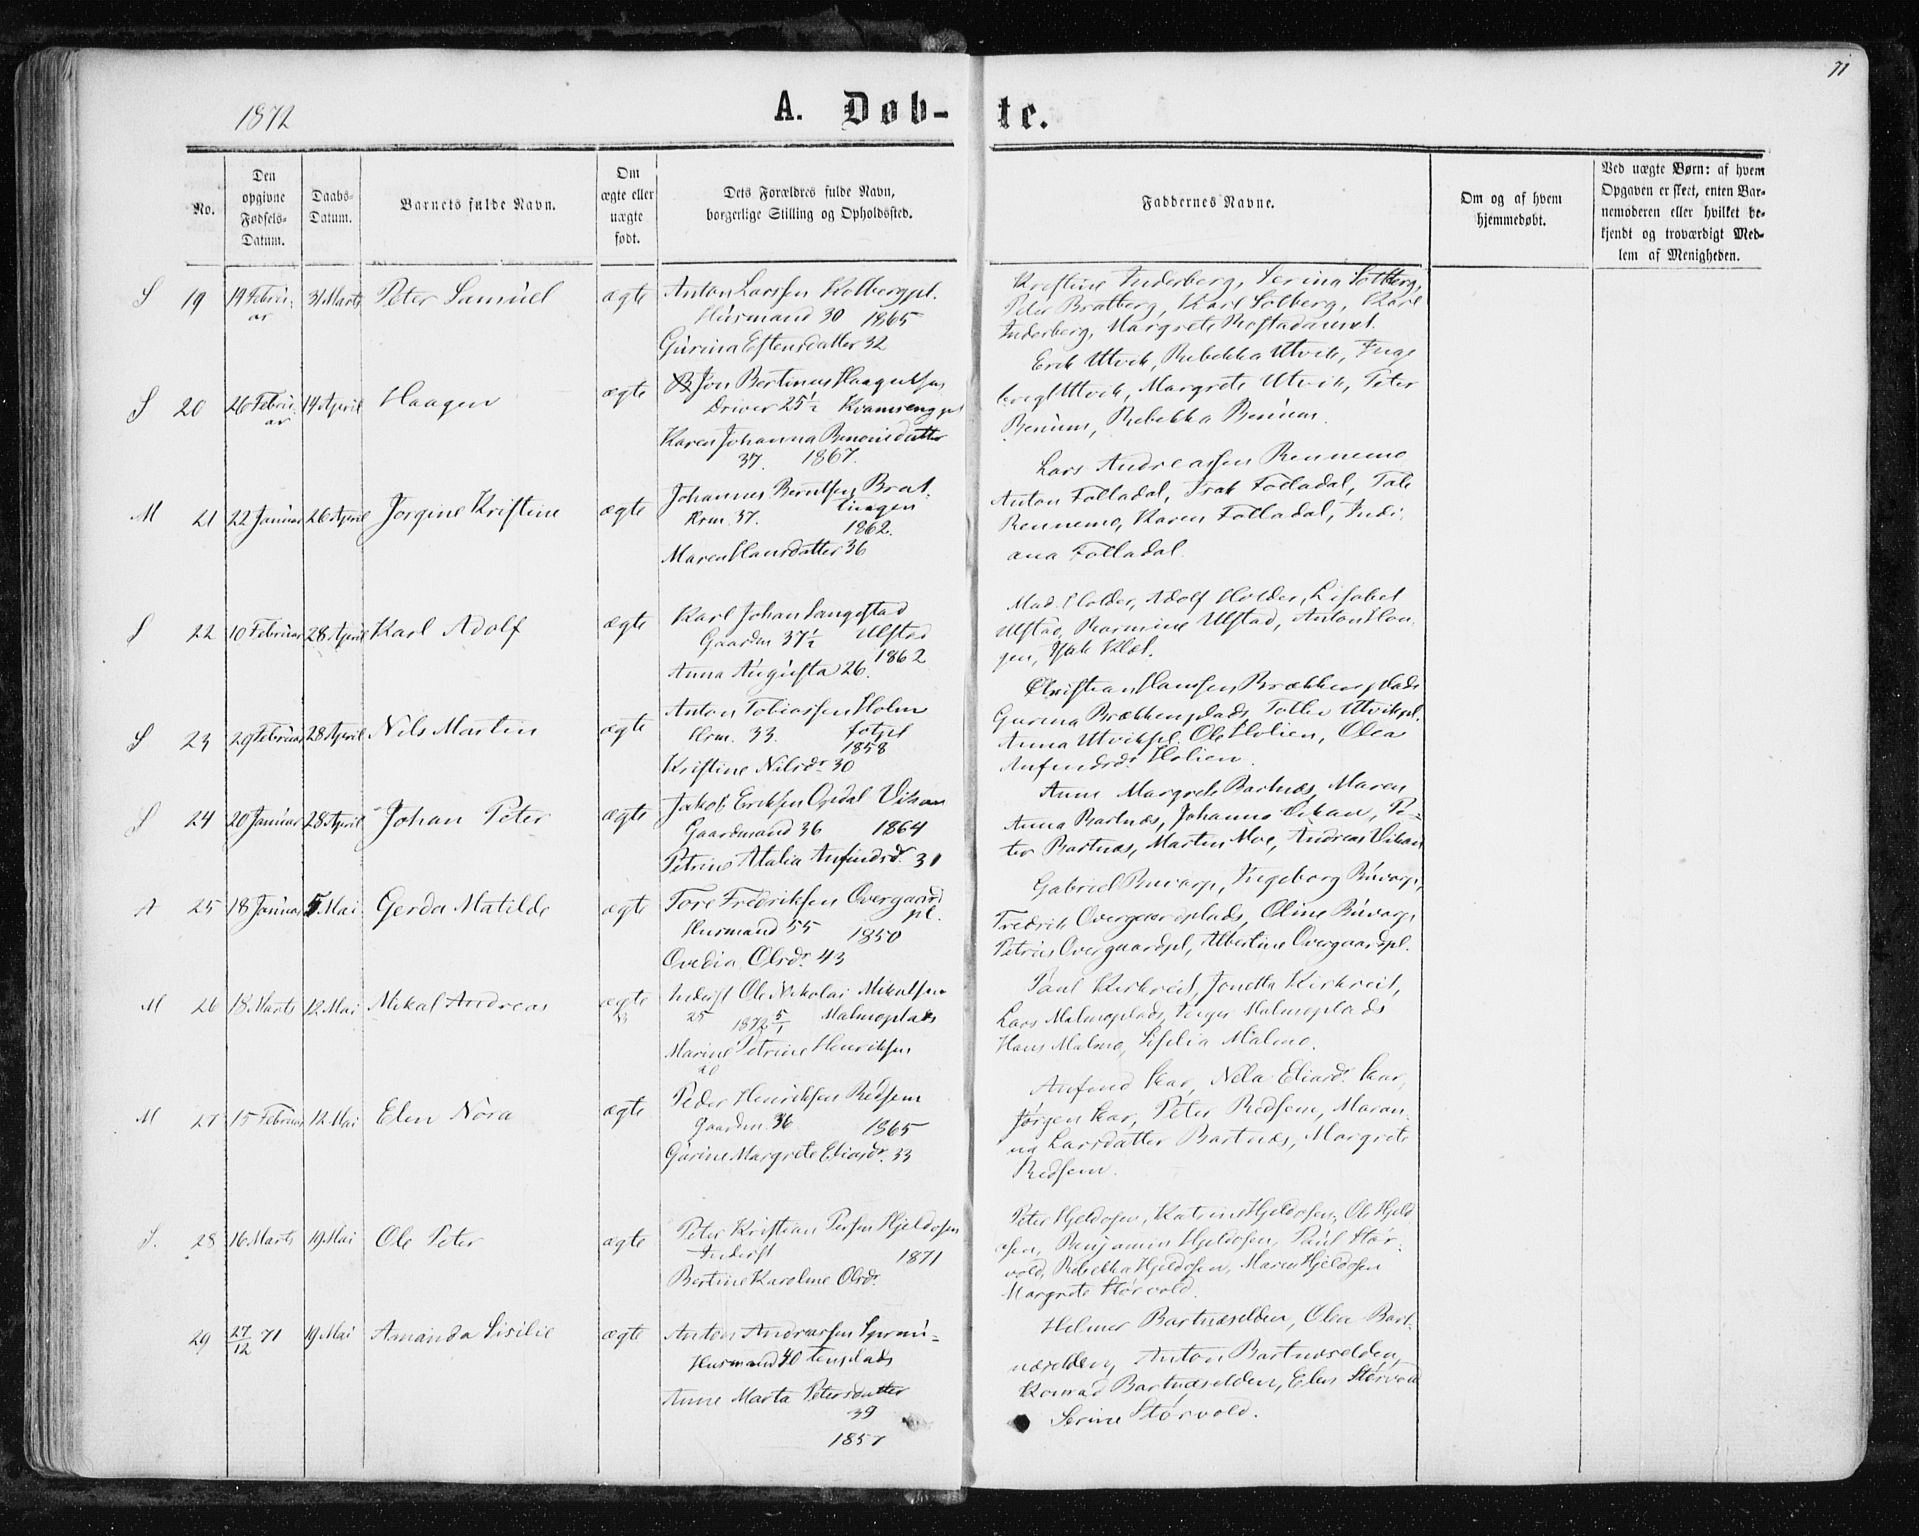 71
1872
A. Døb-
te.
No.
Den opgivne Fødsels-Datum.
Daabs-Datum.
Barnets fulde Navn.
Om ægte eller uægte født.
Dets Forældres fulde Navn, borgerlige Stilling og Opholdssted.
Faddernes Navne.
Om og af hvem hjemmedøbt.
Ved uægte Børn: af hvem Opgaven er skeet, enten Barnemoderen eller hvilket bekjendt og troværdigt Medlem af Menigheden.
S 19 19 Februar 31 Marts Peter Samuel ægte
Anton Larssen Kolbergpl.
Husmand 30 1865
Gurina Estensdatter 32
Kristine Inderberg, Serina Solberg,
Peter Bratberg, Karl Solberg, Karl
Inderberg, Margrete
S 20 26 Februar 14 April Haagen ægte
Jon Bertinus Haagensen
Driver 25½ Kvamsengpl
Karen Johanna Benonisdatter
37. 1867.
Erik Utvik, Rebekka Utvik, Inge
Utvik, Margrete Utvik, Peter
Benum, Rebekka Benum.
M 21 22 Januar 26 April Jørgine Kristine ægte
Johannes Berntsen Brat
37. 1862.
Maren Hansdatter 36
Lars Andreassen Rennemo
Anton Folladal, Isak Folladal,
Rennemo, Karen Folladal, Indi
ana Folladal.
S 22 10 Februar 28 April Karl Adolf ægte
Karl Johan Langstad
Gaardm 37½ Ulstad
Anna Augusta 26. 1862
Mad. Holder, Adolf Holder, Lisabet
Ulstad, Ulstad, Anton
S 23 29 Februar 28 April Nils Martin ægte
Anton Tobiassen Holm
Hrm. 33.
1858
Kristine Nilsdr 30
Christian Hansen Brækkenplads
Gurina Brækkenplads, Utvikpl.
Anna Utvikpl. Ole Holien, Olea
Anfindsdr Holien.
S 24 20 Januar 28 April Johan Peter ægte
Jakob Eriksen Opdal Vikan
Gaardmand 36 1864
Petrine Atalia Anfindsdr. 31
Anne Margrete Bartnæs, Maren
Anna Bartnæs, Johannes Vikan, Pe-
ter Bartnæs, Martin Moe, Andreas Vikan
A 25 18 Januar 5 Mai Gerda Matilde ægte
Tore Fredriksen Overgaard
pl.
Husmand 55 1850
Ovedia Olsdr 43
Gabriel Buvarp, Ingeborg Buvarp,
Fredrik Overgaardplads, Oline Buvarp
Petrus Overgaardpl, Albertine Overgaardpl.
M 26 18 Marts 12 Mai Mikal Andreas ægte
Inderst Ole Nikolai Mikalsen
25 1872 5/1 Malmoplads
Marine Petrine Henriksen
20
Paul Kirkreit, Jonetta Kirkreit,
Lars Malmoplads, Inger Malmoplads
Hans Malmo, Sisilia Malmo.
M 27 15 Februar 12 Mai Elen Nora ægte
Peder Henriksen Redsem
Gaardm. 36 1865
Gurine Margrete Eliasdr. 33
Anfind Kar, Nela Eliasdr. Kar,
Jørgen Kar, Peter Redsem, Maran
na Larsdatter Bartnæs, Margrete
Redsem.
S. 28 16 Marts 19 Mai Ole Peter ægte
Peter Kristian Persen Hjeldosen
Inderst 1871
Bertine Karoline Olsdr.
Peter Hjeldosen, Katrine Hjeldosen, Ole Hjeld
osen, Benjamin Hjeldosen, Paul Stør-
vold, Rebekka Hjeldosen, Maren Hjeldosen
Margrete Størvold.
29 27/12 71 19 Mai Amanda Sisilie ægte
Anton Andreassen Sprau-
Husmand 40 tenplads
Anne Marta Petersdatter
39
1857
Helmer Bartnæselden, Olea Bart-
næselden, Anton Bartnæselden,
Konrad Bartnæselden, Elen Størvold
Serine Størvold.